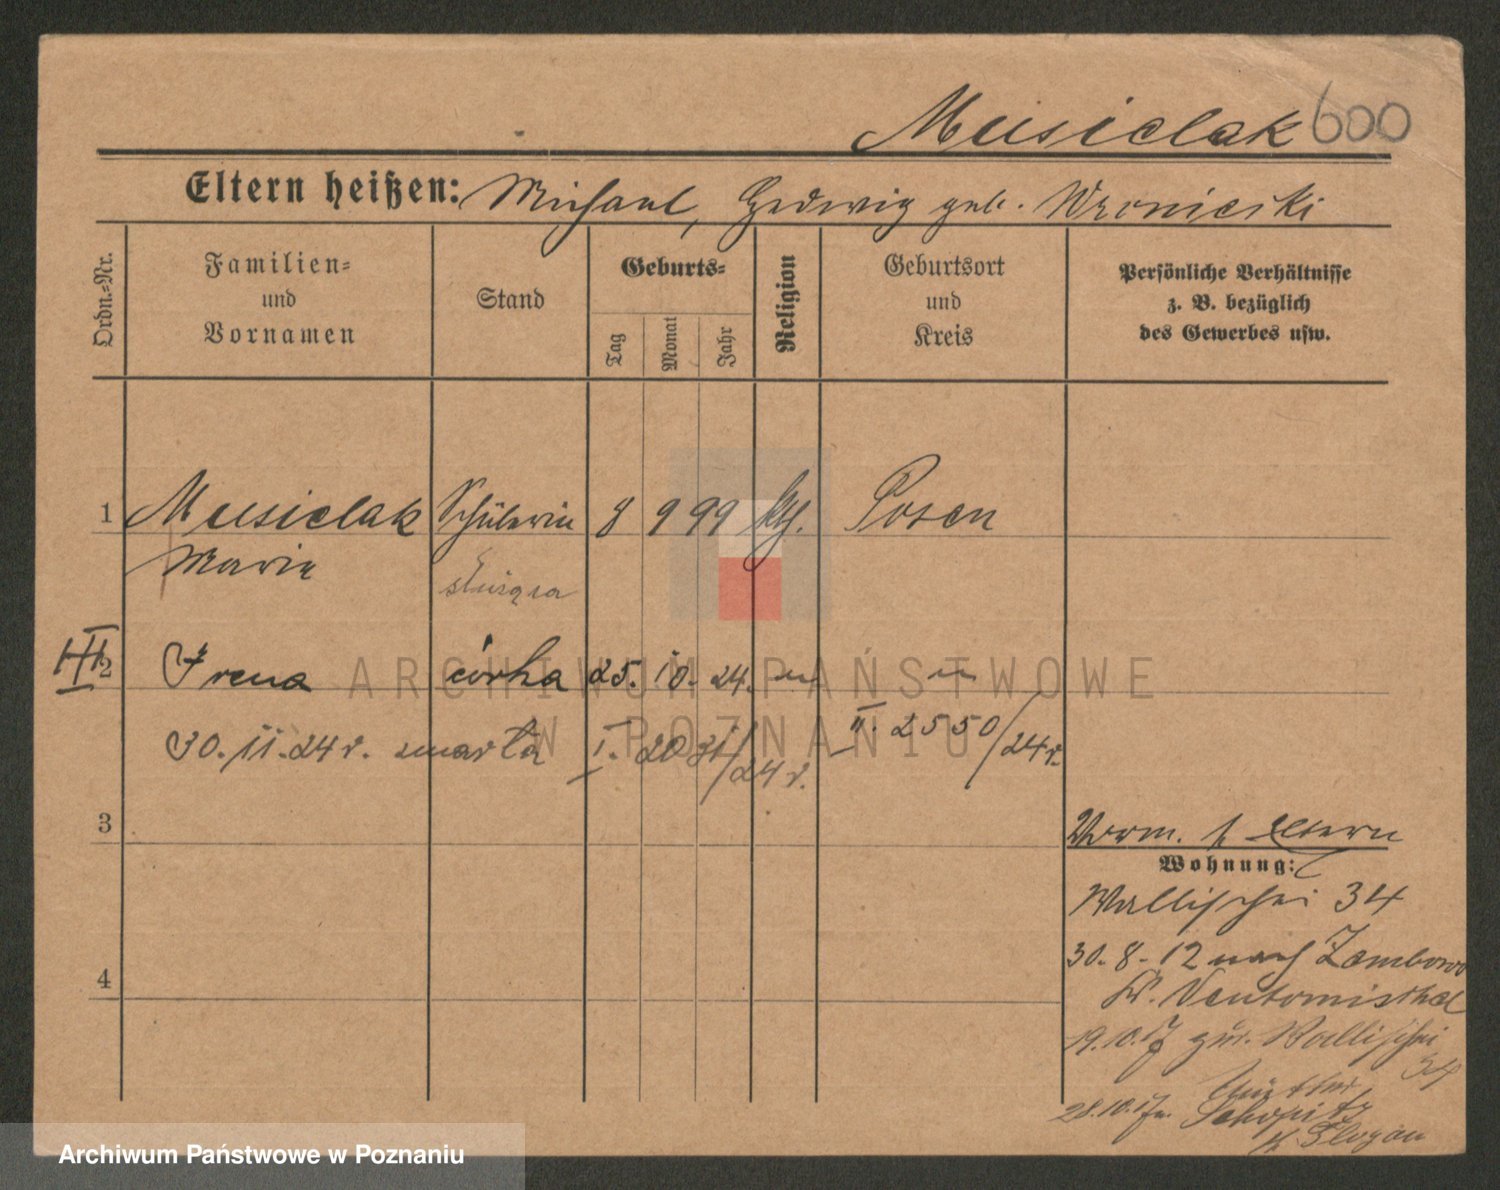 Musielak 600
Eltern heißen: Michael, Hedwig geb. Wronieski
Ordn.-Nr.
Familien- und Vornamen
Stand
Geburts-
Tag
Monat
Jahr
Religion
Geburtsort und Kreis
Persönliche Verhältnisse z. B. bezüglich des Gewerbes usw.
1 Musielak Schülerin 8 9 99 kth. Posen
Maria
służąca
III 2 Irena córka 25. 10. 24. " "
30. 11. 24 r. zmarła I. 2031/24 r. II. 2550/24 r.
3
Vorm. b. Eltern
Wohnung:
Wallischei 34
30. 8. 12 nach Zembowo
4
Kr. Neutomischel
19. 10. 17 zur. Wallischei
34
28. 10. 17 n.
Kr. Glogau
ARCHIWUM PAŃSTWOWE
W POZNANIU
Archiwum Państwowe w Poznaniu